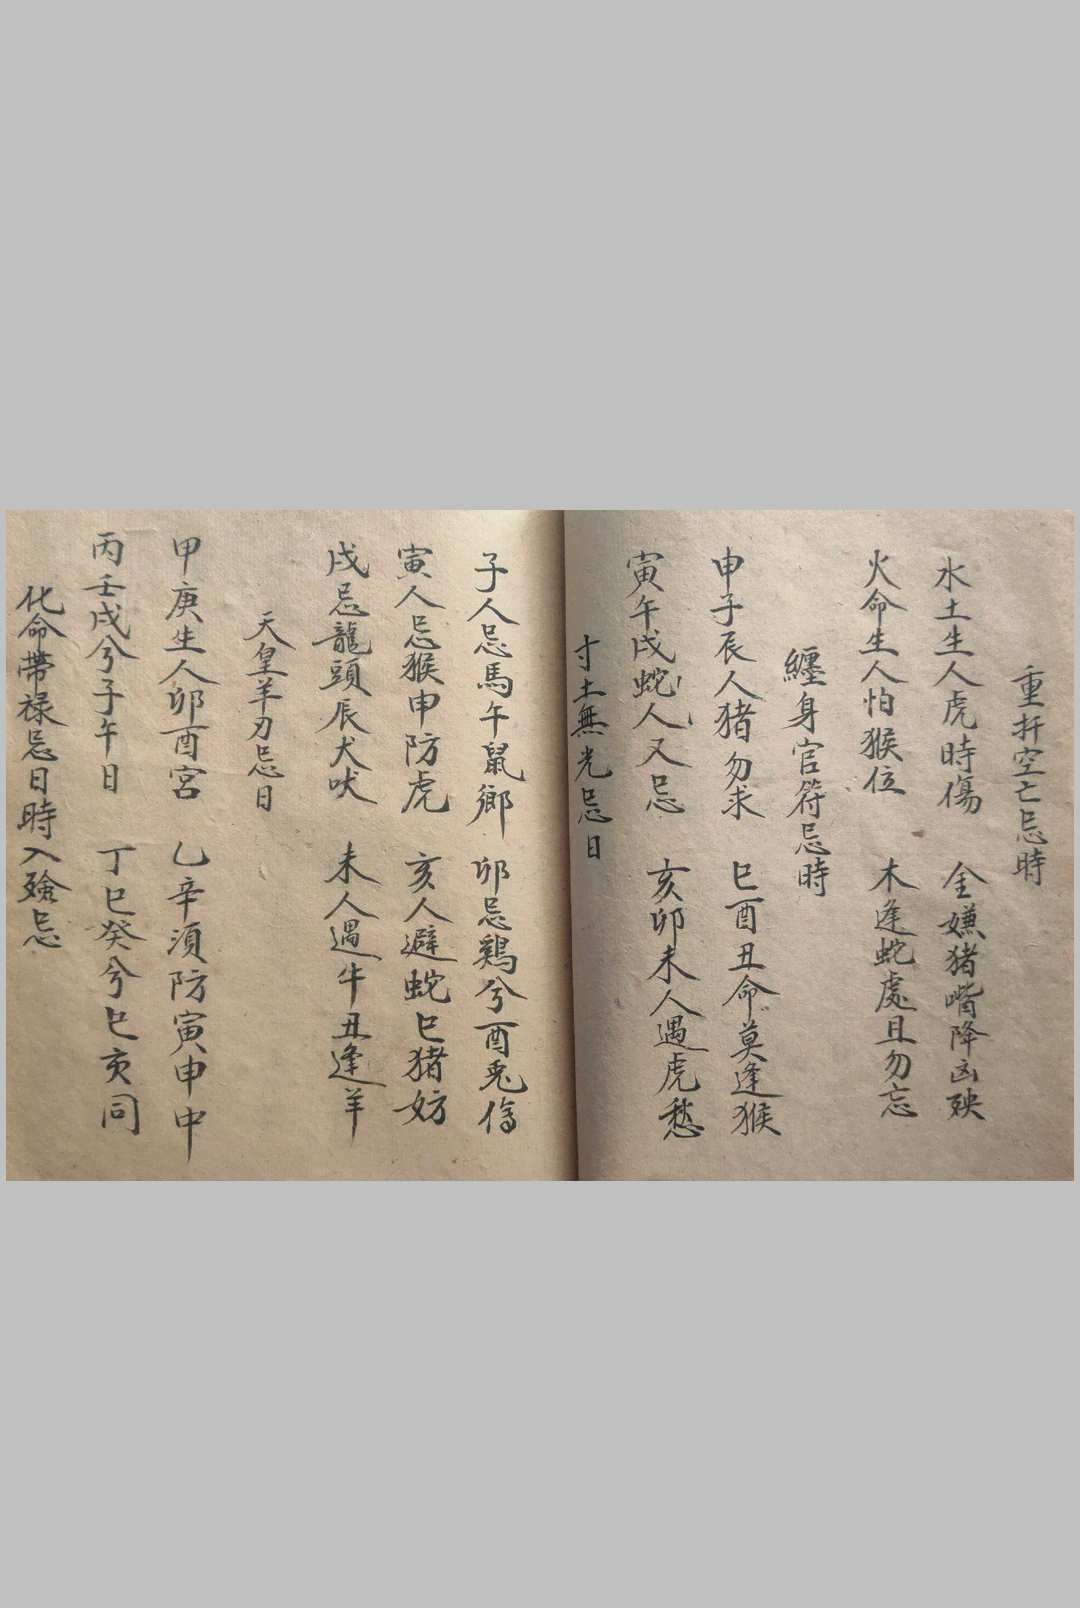 重扦空亡忌時
水土生人虎時傷 金嫌猪嘴降凶殃
火命生人怕猴位 木逢蛇處且勿忘
纏身官符忌時
申子辰人猪勿求 巳酉丑命莫逢猴
寅午戌蛇人又忌 亥卯未人遇虎愁
寸土無光忌日
子人忌馬午鼠鄉 卯忌鷄兮酉兎傷
寅人忌猴申防虎 亥人避蛇巳猪妨
戌忌龍頭辰犬吠 未人遇牛丑逢羊
天皇羊刃忌日
甲庚生人卯酉宮 乙辛須防寅申中
丙壬戌兮子午日 丁巳癸兮巳亥同
化命帶禄忌日時入殮忌